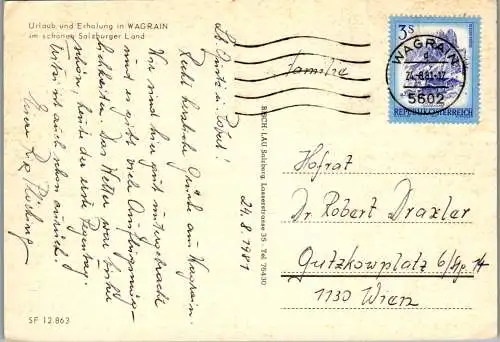 Urlaub und Erholung in WAGRAIN
im schönen Salzburger Land
Recht herzliche Grüße aus Wagrain.
Wir sind hier gut untergebracht
und es gibt viele Ausflugsmög-
lichkeiten. Das Wetter war bisher
schön, heute der erste Regentag.
ist auch schon zurück.
24. 8. 1981
RISCH-LAU Salzburg, Lasserstrasse 35 - Tel. 76430
SF 12.863
3S
REPUBLIK ÖSTERREICH
WAGRAIN
d
24.-8.81-17
5602
Familie
Hofrat
Dr Robert Draxler
Gutzkowplatz 6/
1130 Wien